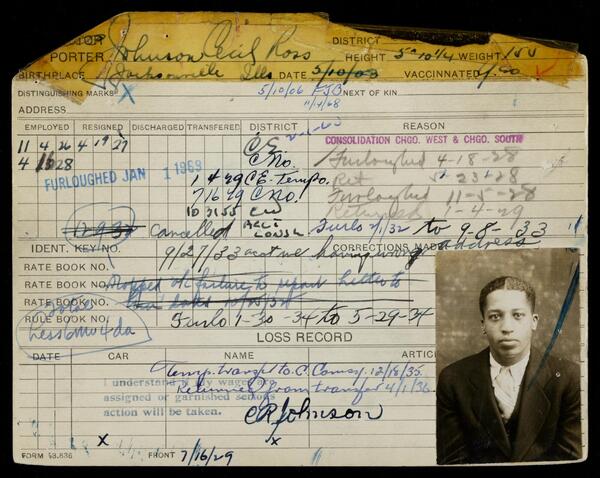 PORTER Johnson Cecil Ross DISTRICT
HEIGHT 5-10 1/4 WEIGHT 155
BIRTHPLACE Jacksonville Ills DATE 5/10/03 VACCINNATED
DISTINGUISHING MARKS X 5/10/06 NEXT OF KIN
11/4/68
ADDRESS
EMPLOYED RESIGNED DISCHARGED TRANSFERRED DISTRICT REASON
11 4 26 4 19 27 C.E. CONSOLIDATION CHGO. WEST & CHGO. SOUTH
4 16 28 C No. Furloughed 4-18-28
FURLOUGHED JAN 1 1969
1 4 29 C.E. Tempo. Ret 5-23-28
7 16 29 C No. Furloughed 11-5-28
10 31 55 CW Returned 1-4-29
Cancelled Furlo 7/1/32 to 9-8-33
IDENT. KEY NO. 9/27/33 acct not having wrong address CORRECTIONS MADE
RATE BOOK NO.
RATE BOOK NO. Dropped a/c failure to report
RATE BOOK NO.
RULE BOOK NO. Furlo 1-30-34 to 5-29-34
Less 6 mo 4 da
LOSS RECORD
DATE CAR NAME ARTIC
Temp. transf to C. Comsy. 12/18/35
Returned from transfer 4/1/36
I understand if my wages are
assigned or garnished serious
action will be taken.
CRJohnson
X X
FORM 93.836 FRONT 7/16/29